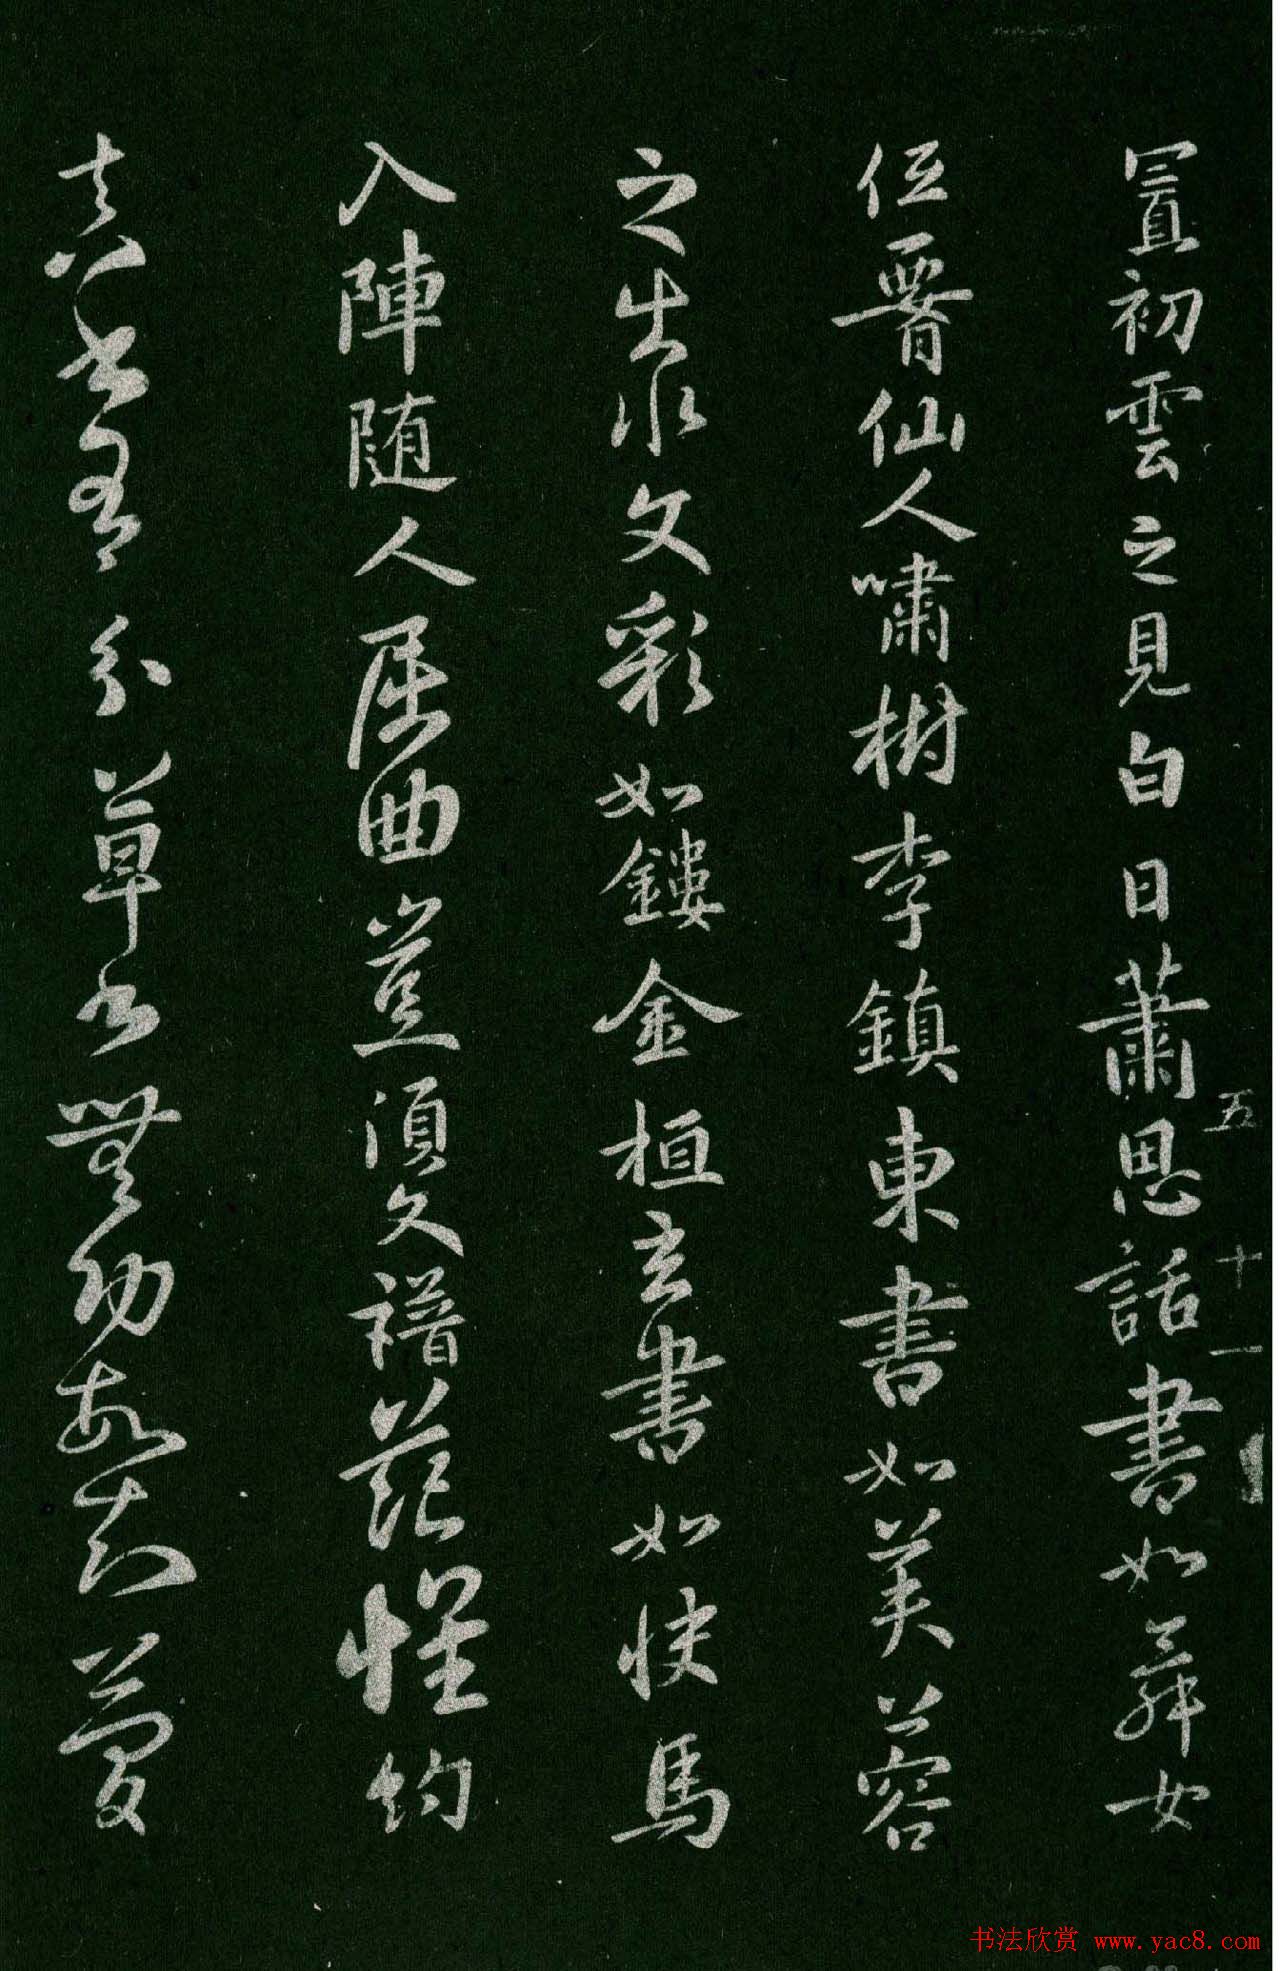 置初雲之見白日蕭思話書如舞女
低腰仙人嘯樹李鎮東書如芙蓉
之出水文彩如鏤金桓玄書如快馬
入陣随人屈曲豈須文譜范懷約
真書有分草書無功故知簡
五 十一
书法欣赏 www.yac8.com